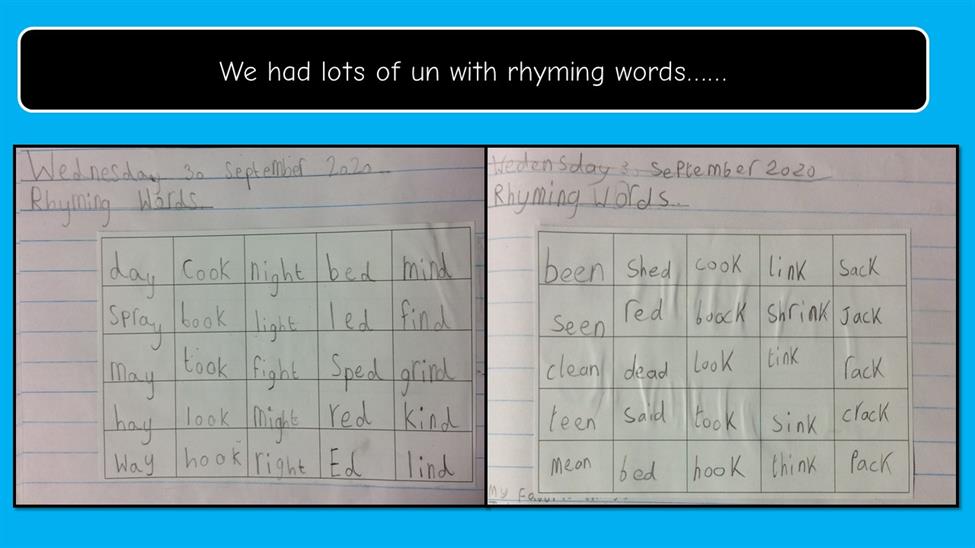 We had lots of un with rhyming words......
Wednesday 30 September 2020
Rhyming Words
day cook night bed mind
spray book light led find
may took fight Sped grind
hay look might red kind
way hook right Ed lind
Wedensday 30 September 2020
Rhyming Words
been shed cook link sack
seen red boock shrink Jack
clean dead look tink rack
teen said took sink crack
mean bed hook think Pack
My